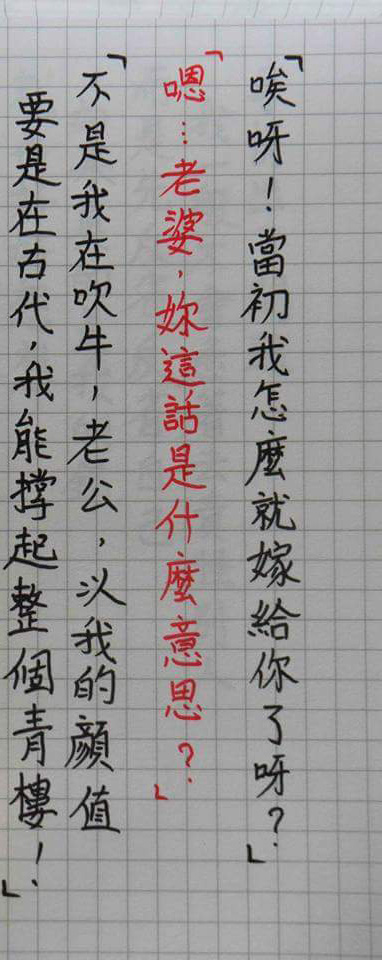 「唉呀！當初我怎麼就嫁給你了呀？」
「嗯…老婆，妳這話是什麼意思？」
「不是我在吹牛，老公，以我的顏值
要是在古代，我能撐起整個青樓！」